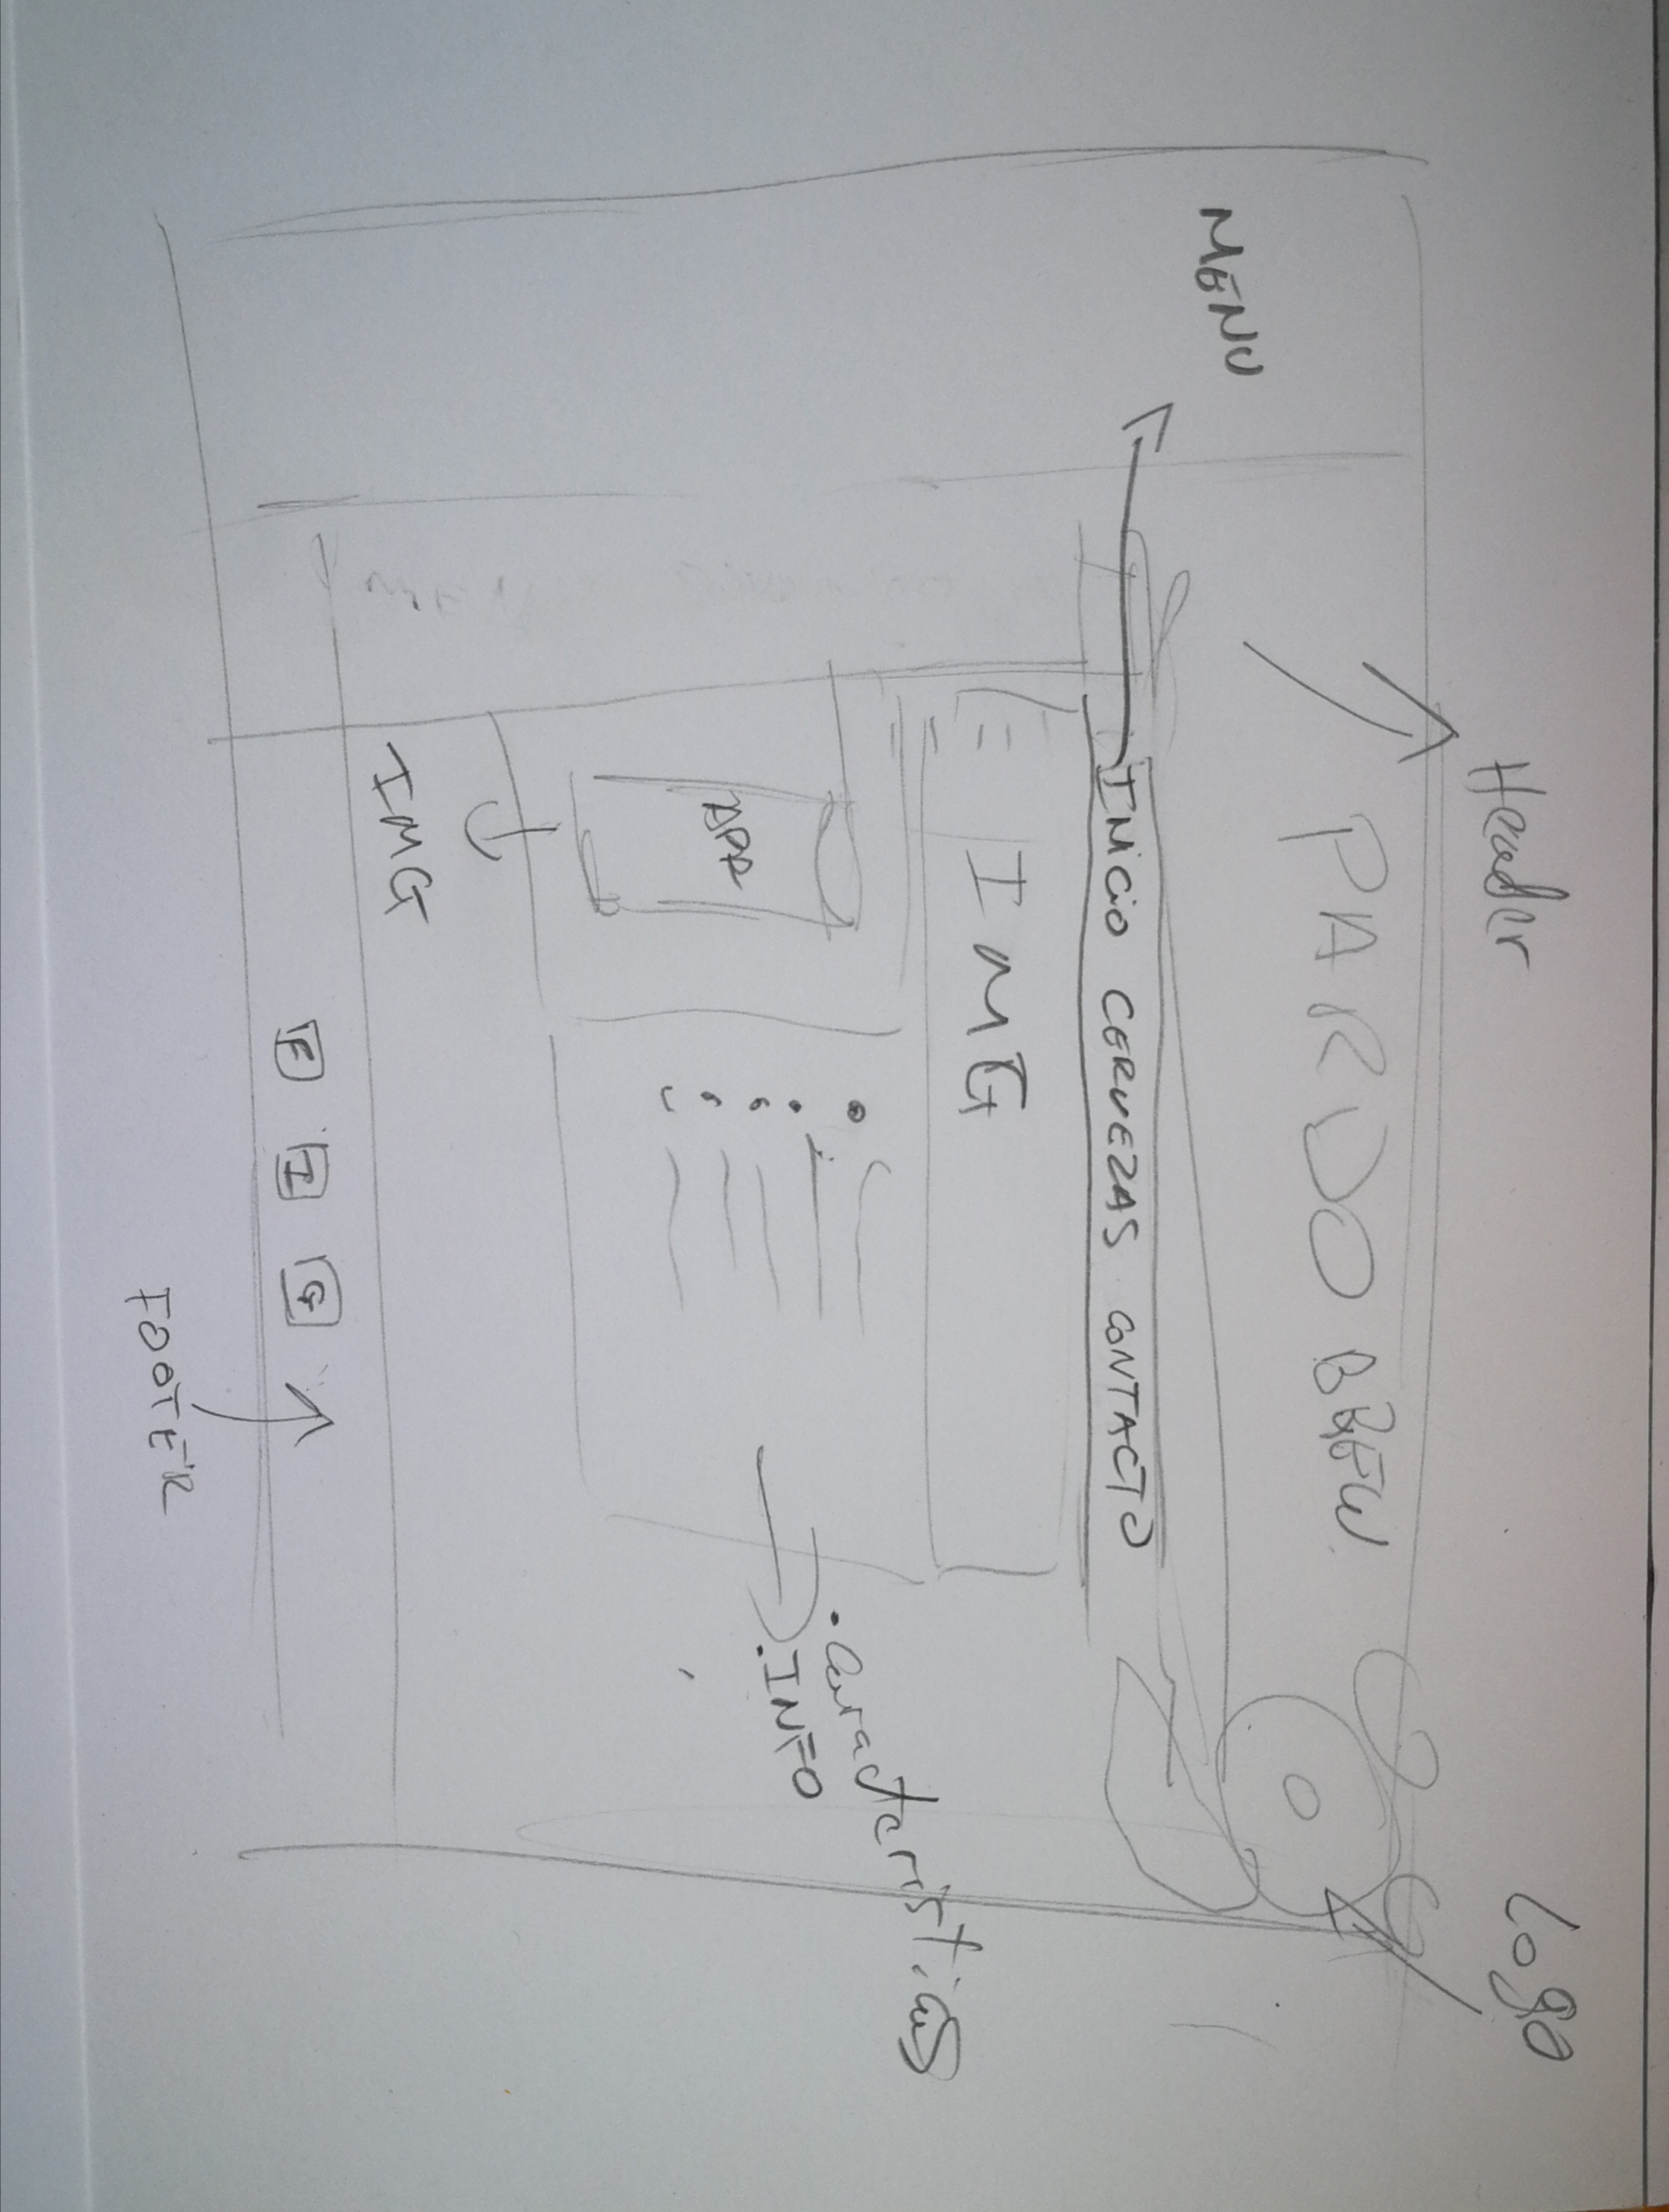 Header
Logo
PARDO BREW.
MENU
INICIO CERVEZAS CONTACTO
IMG
• Caracteristicas
• INFO
IMG
F I G
FOOTER